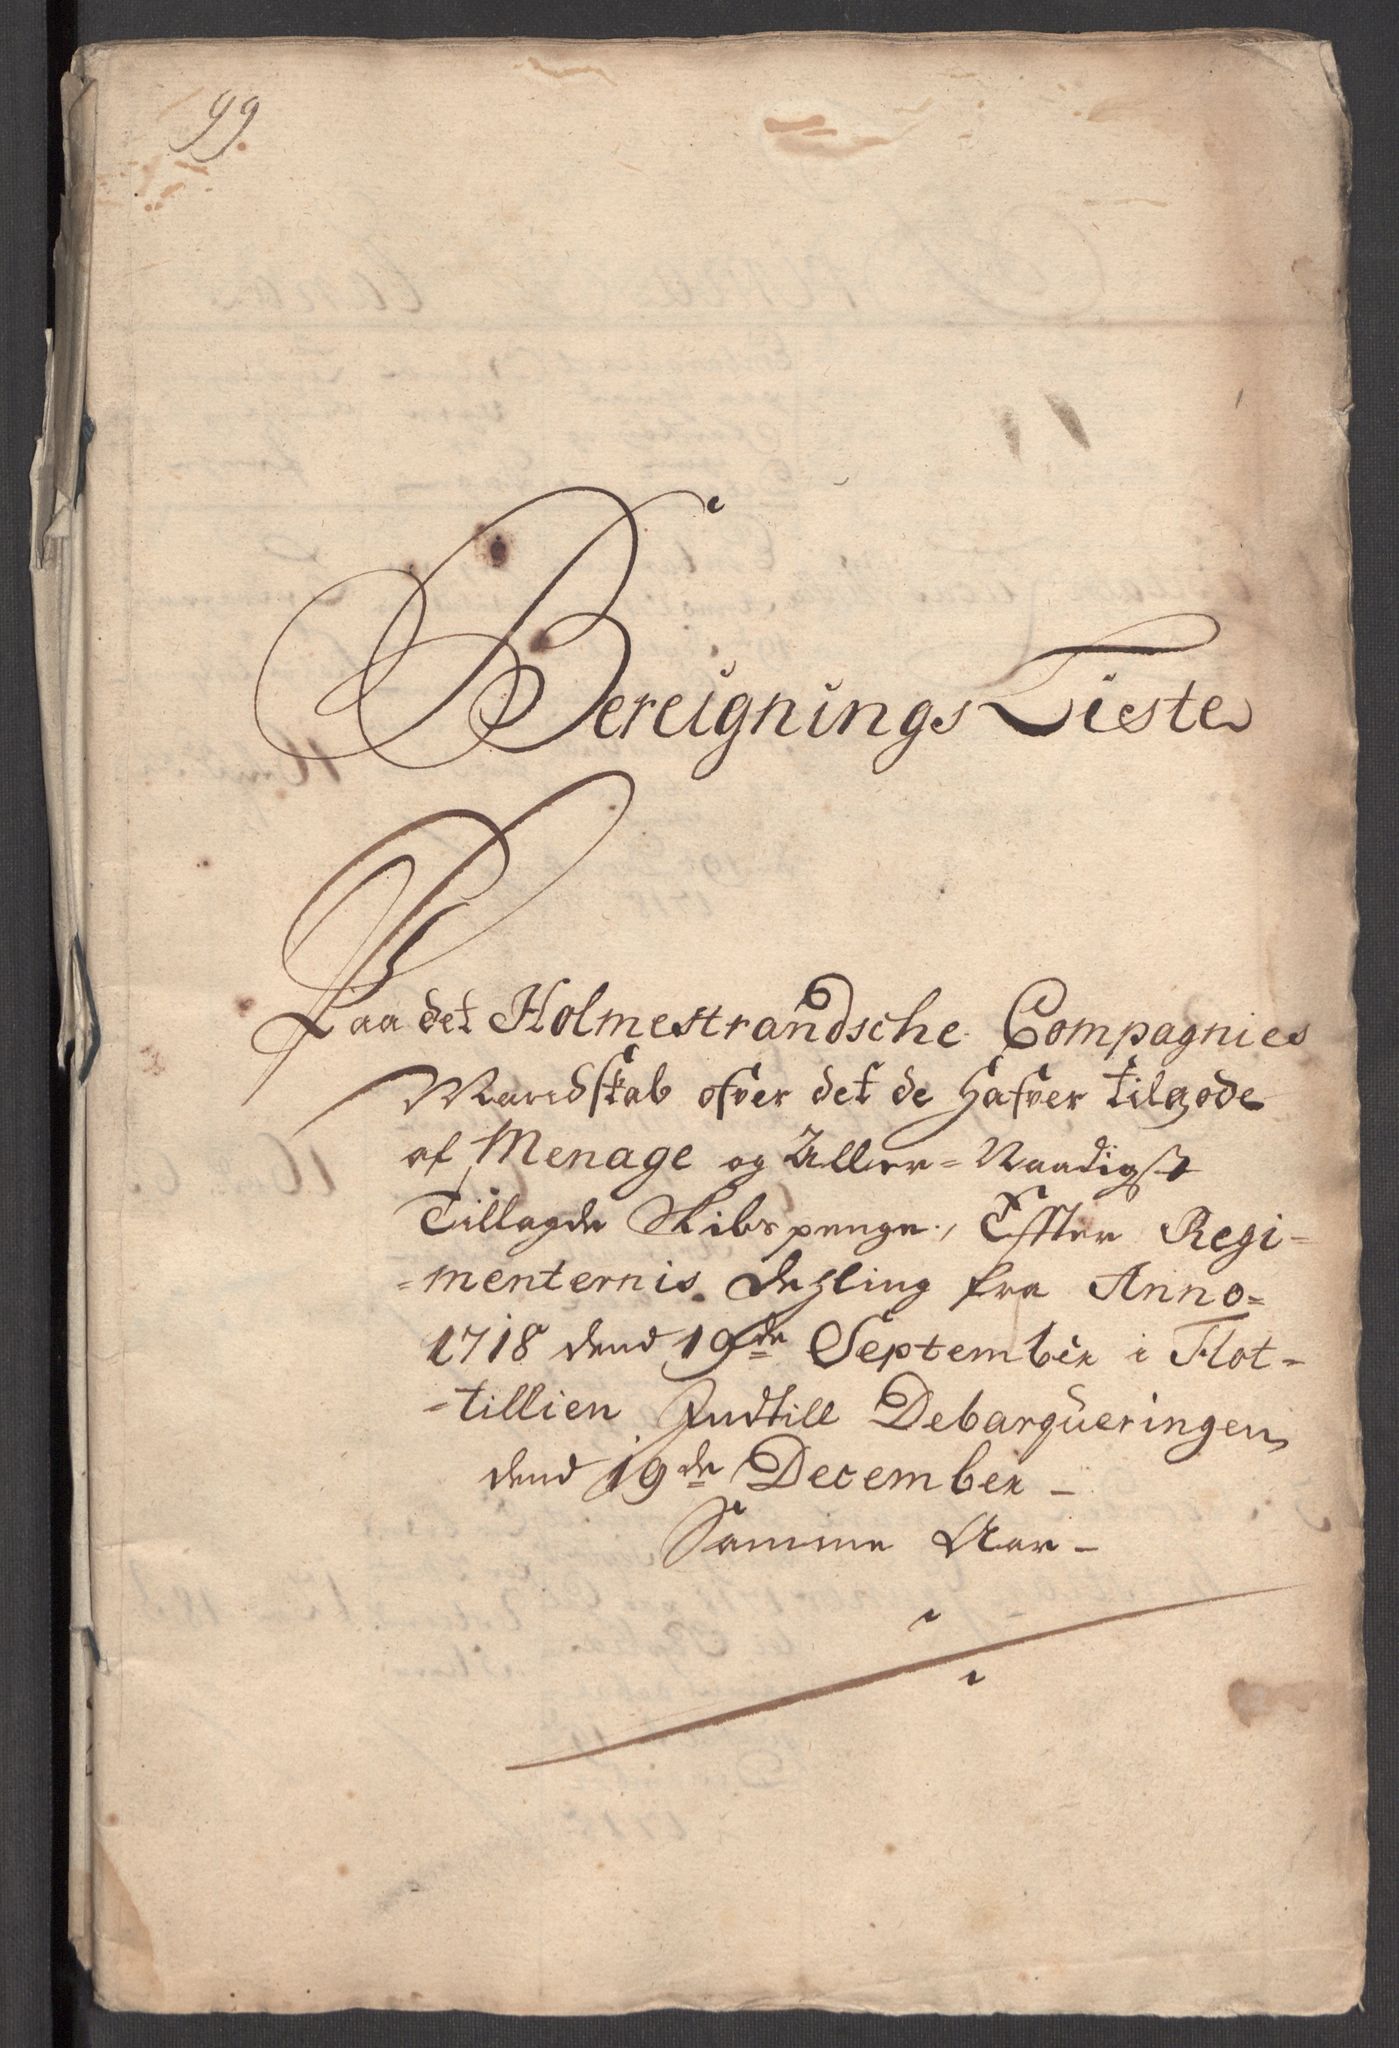 99.
Bereignings Lieste
Paa det Holmestrandsche Compagnies
Mandskab ofver det de Hafver tilgode
af Menage og Aller-Naadigst
Tillagde Skibspenge, Effter Regi-
-menternis Dehling fra Anno-
1718 dend 19de September i Flot-
-tillien Indtill Debarqueringen
dend 19de December -
Samme Aar -